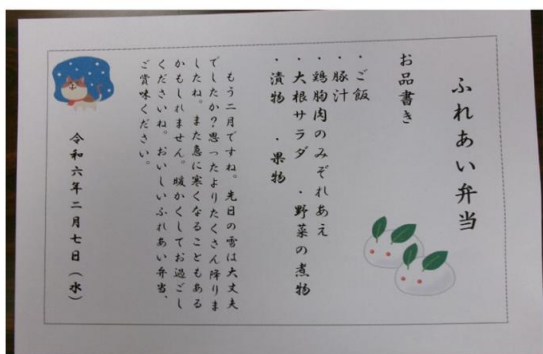 ふれあい弁当
お品書き
・ご飯
・豚汁
・鶏胸肉のみぞれあえ
・大根サラダ ・野菜の煮物
・漬物 ・果物
もう二月ですね。先日の雪は大丈夫
でしたか?思ったよりたくさん降りま
したね。また急に寒くなることもある
かもしれません。暖かくしてお過ごし
くださいね。おいしいふれあい弁当、
ご賞味ください。
令和六年二月七日(水)